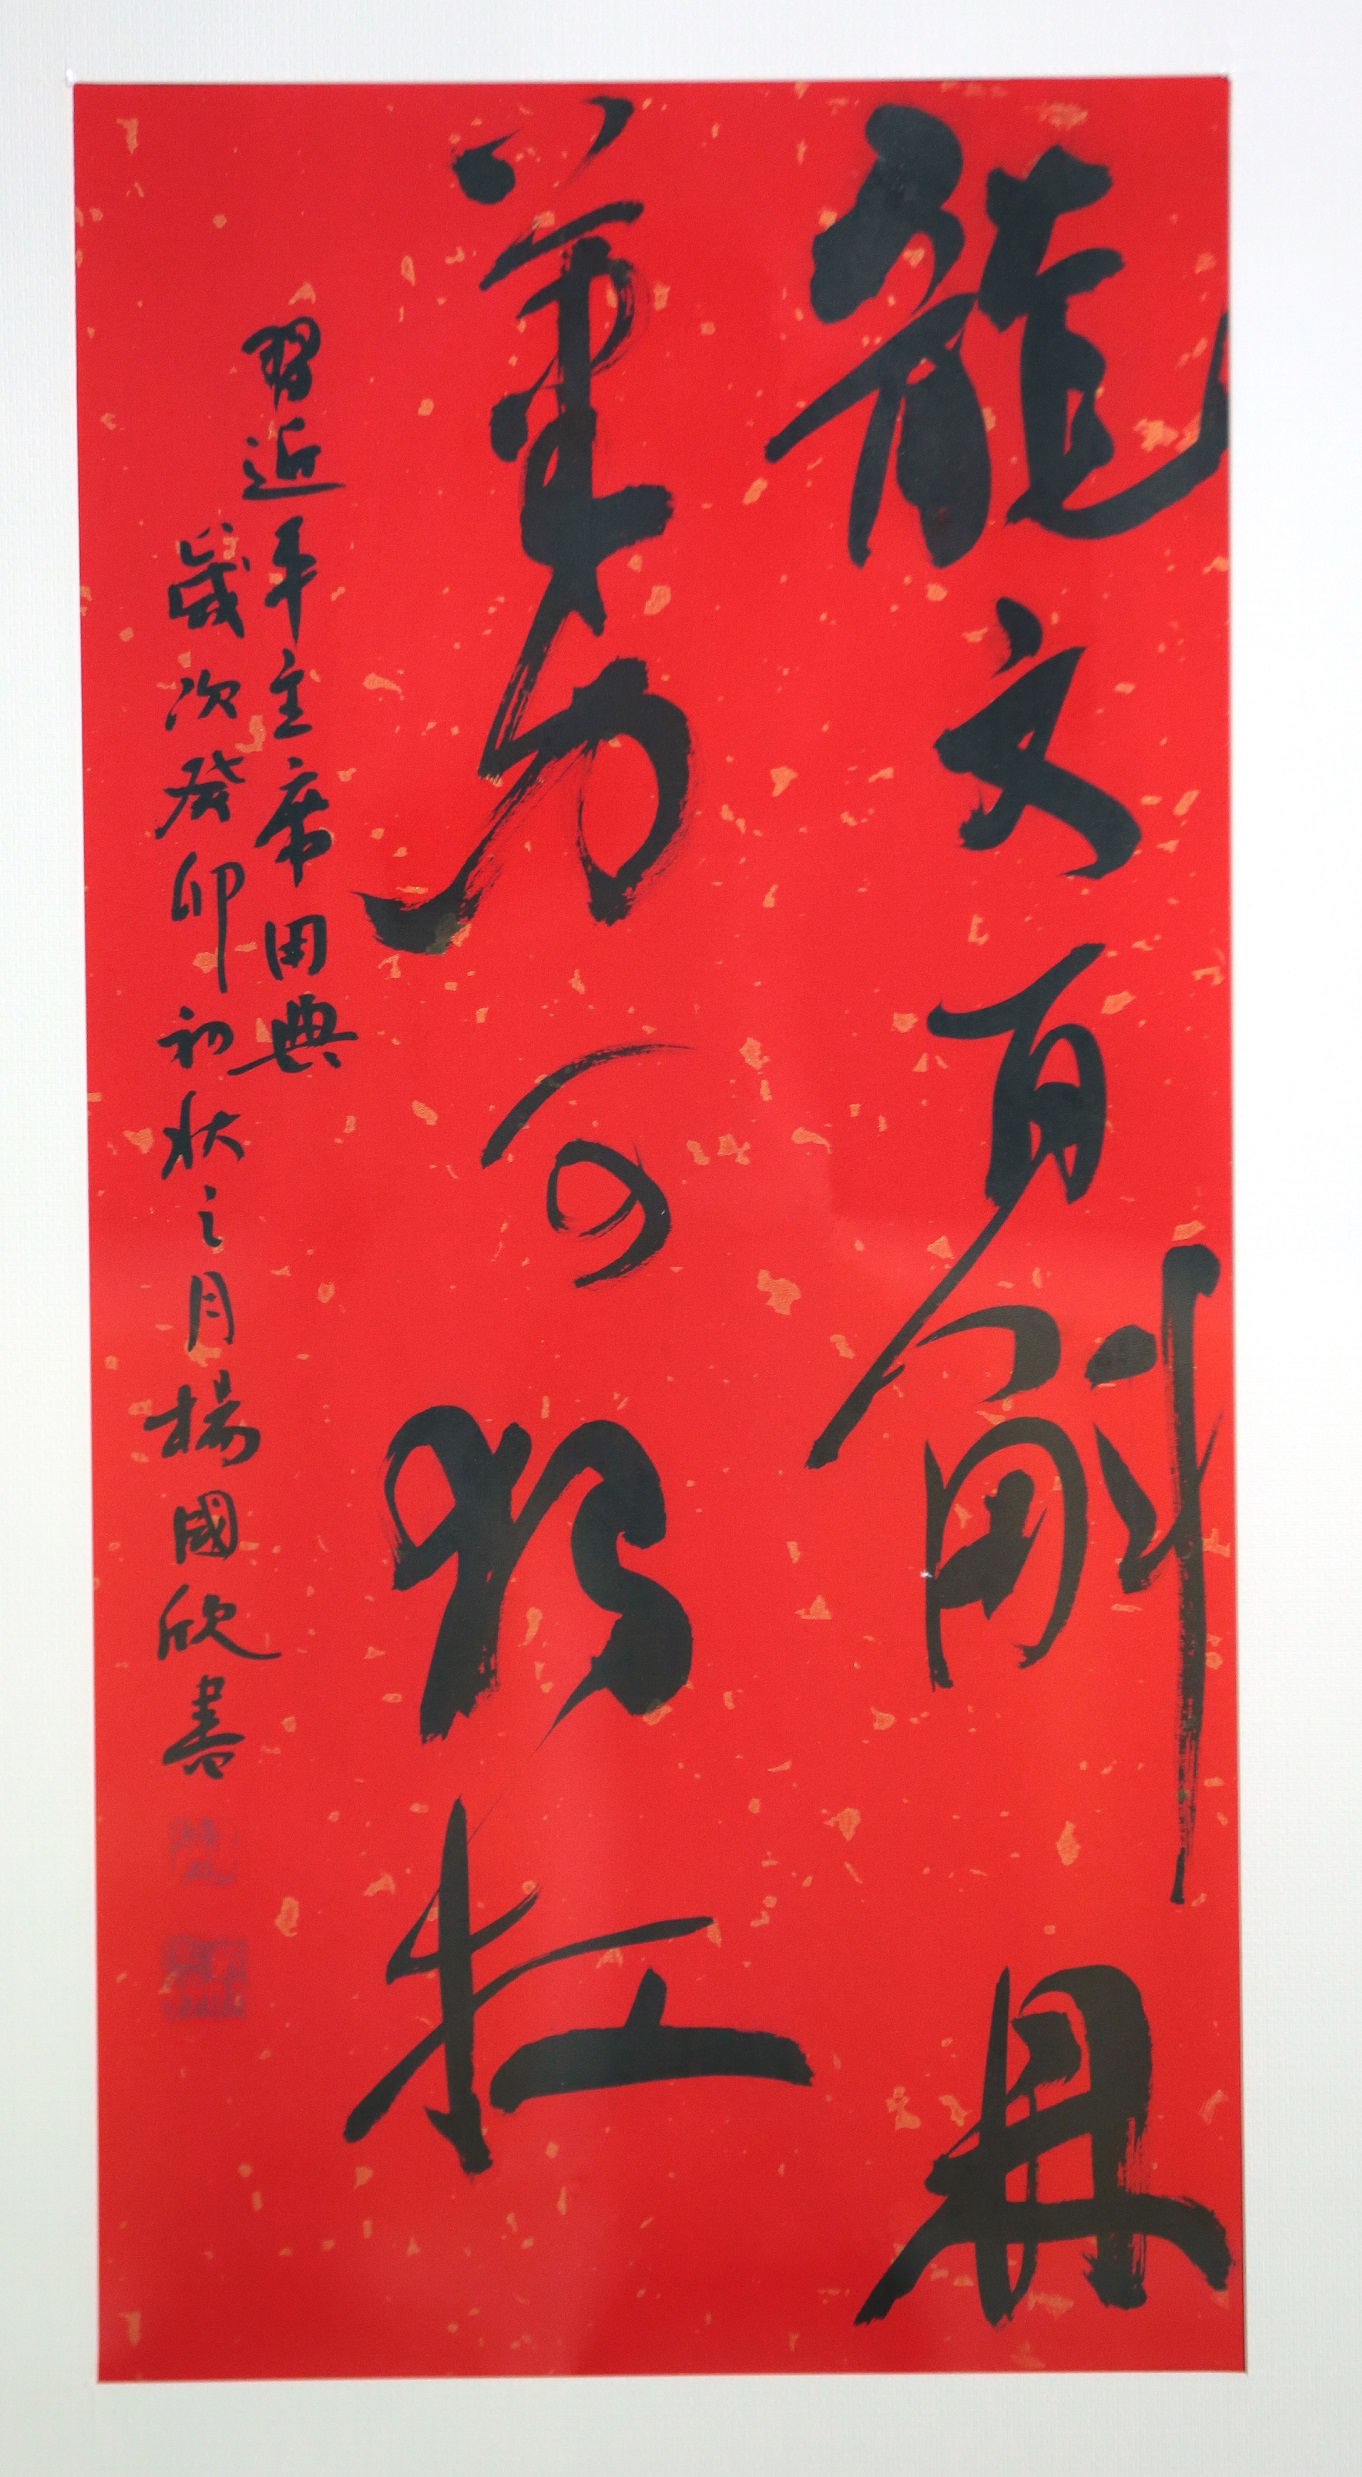 龍文百斛鼎
筆力可獨扛
習近平主席用典
歲次癸卯初秋之月楊國欣書